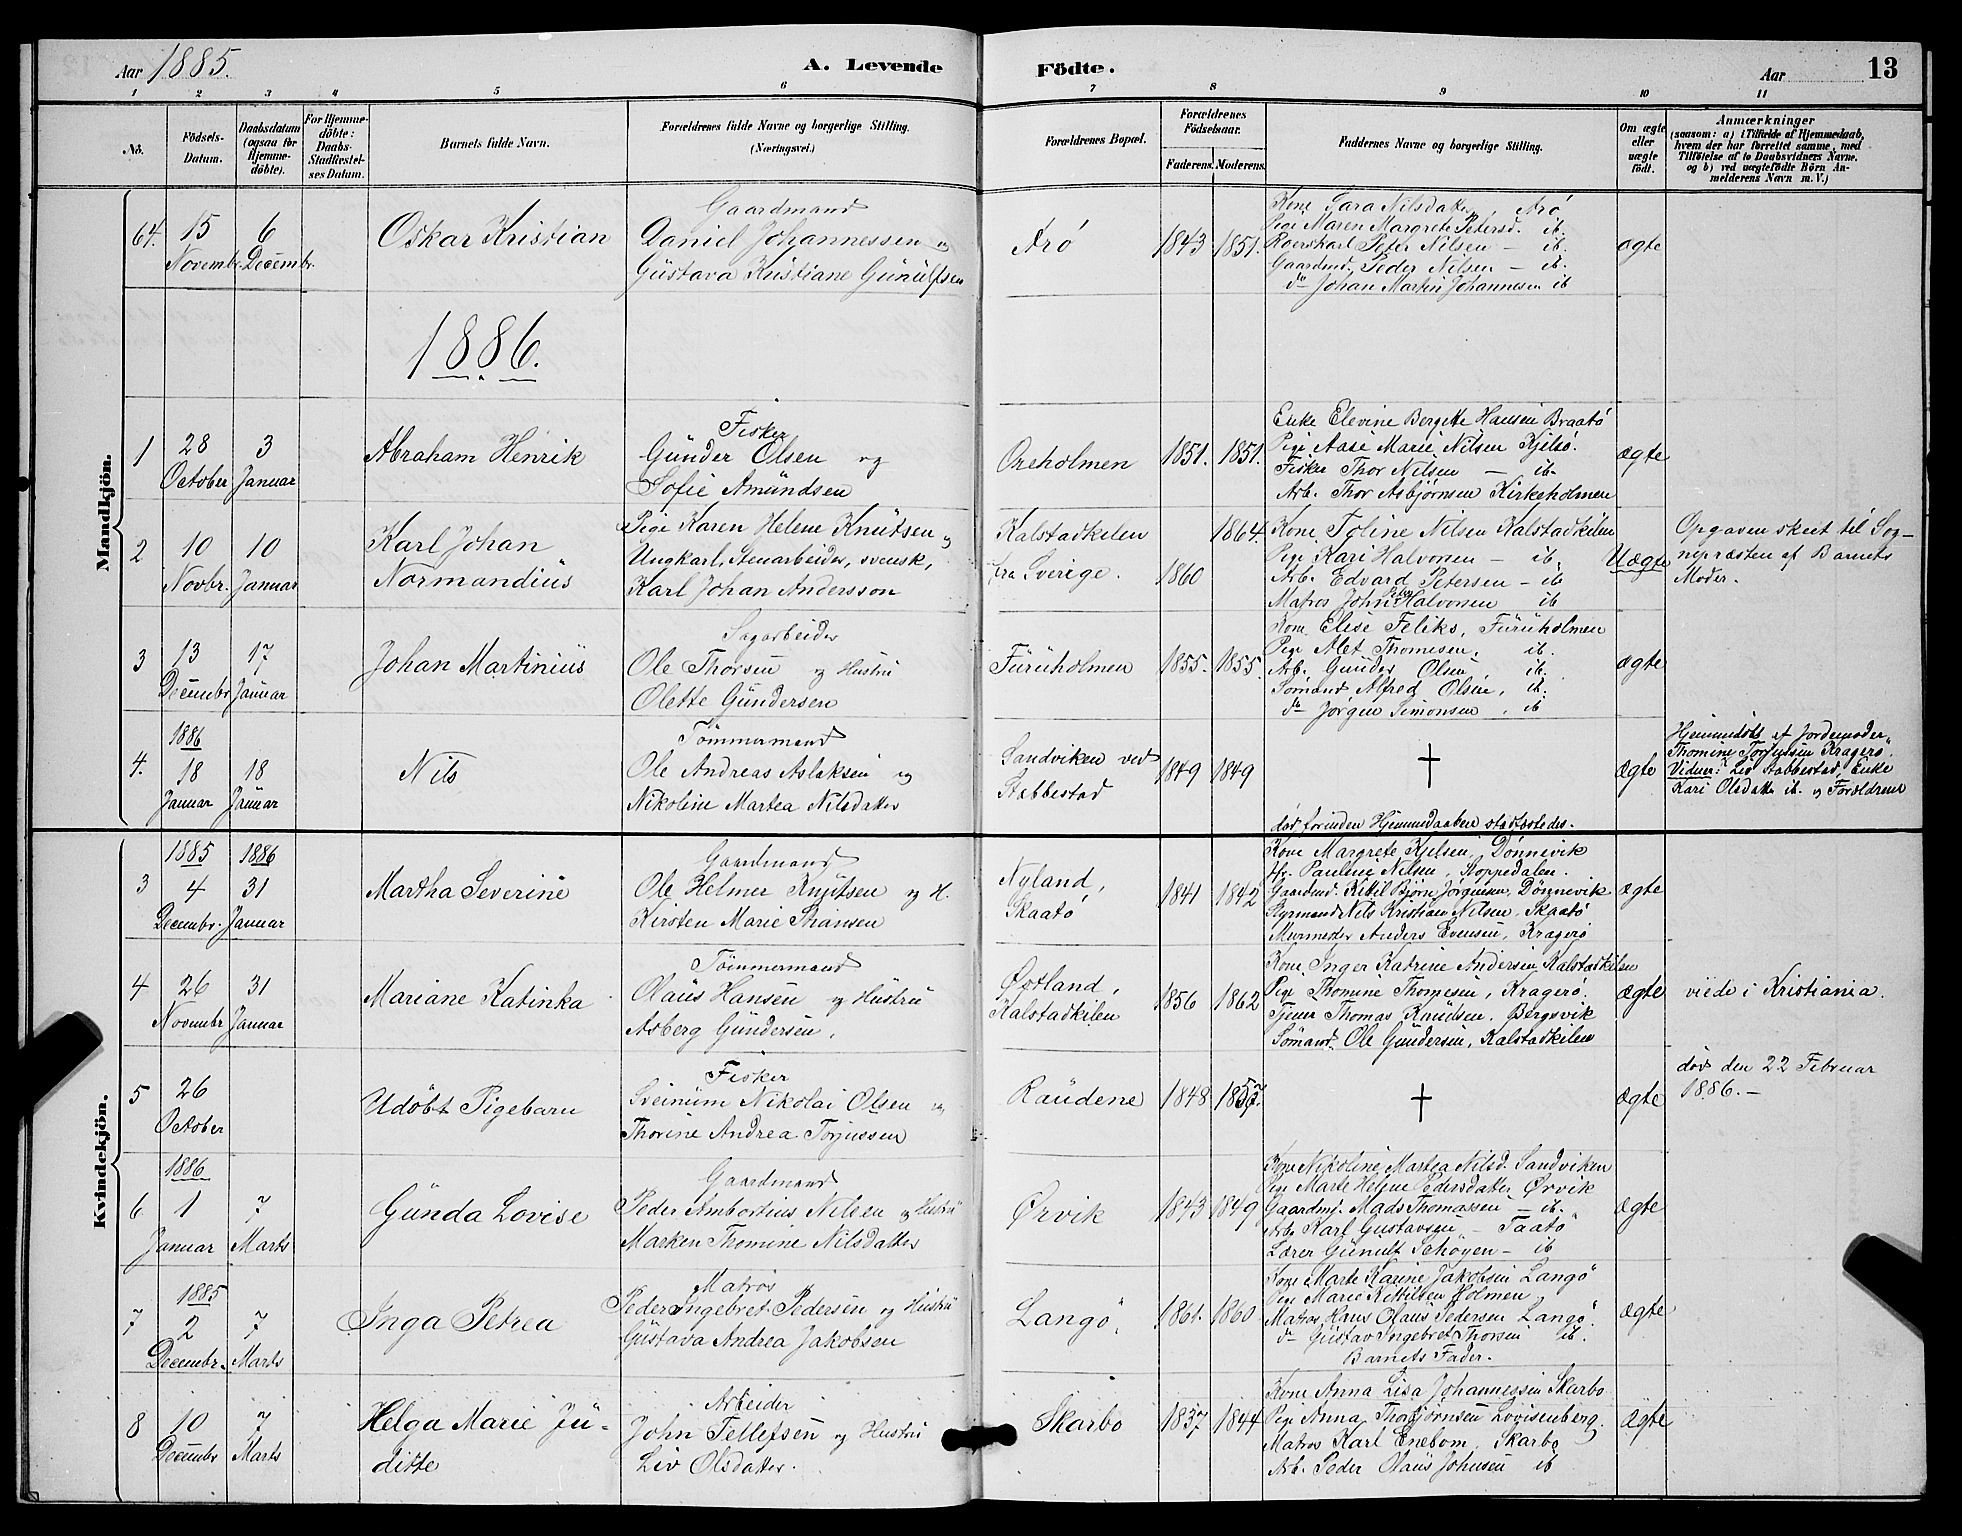 Aar 1885.
A. Levende Födte.
Aar
13
1 2 3 4 5 6 7 8 9 10 11
No.
Födsels-Datum.
Daabsdatum (ogsaa for Hjemmedöbte).
For Hjemmedöbte: Daabs-Stadfæstelses Datum.
Barnets fulde Navn.
Forældrenes fulde Navne og borgerlige Stilling.
(Næringsvei.)
Forældrenes Bopæl.
Forældrenes Födselsaar.
Faderens. Moderens.
Faddernes Navne og borgerlige Stilling.
Om ægte eller uægte födt.
Anmærkninger
(saasom: a) i Tilfælde af Hjemmedaab,
hvem der har forrettet samme, med
Tilföielse af to Daabsvidners Navne.
og b) ved uægtefödte Börn Anmelderens Navn m. V.)
Mandkjön.
64. 15 Novembr. 6 Decembr.
Oskar Kristian
Gaardmand
Daniel Johannessen og
Gustava Kristiane Gunulfsen
Arö
1843 1851.
Kone Sara Nilsdatter Arö
Pige Maren Margrete Petersd. ib.
Roerskarl Peter Nilsen – ib.
Gaardmd. Peder Nilsen – ib.
do Johan Martin Johannesen ib
ægte
1886.
1 28 October 3 Januar
Abraham Henrik
Fisker
Gunder Olsen og
Sofie Amundsen
Oreholmen
1851. 1851.
Enke Elevine Bergitte Hansen Braatö
Pige Aase Marie Nilsen Kjelsö.
Fisker Thor Nilsen – ib.
Arb. Thor Asbjørnsen Kirkeholmen
Ægte
2 10 Novbr. 10 Januar
Karl Johan
Normandius
Pige Karen Helene Knutsen og
Ungkarl, Stenarbeider, svensk,
Karl Johan Andersson
Kalstadkilen
fra Sverige.
1864.
1860
Kone Toline Nilsen Kalstadkilen
Pige Kari Halvorsen – ib.
Arb. Edvard Petersen – ib
Matros John Halvorsen ib
Uægte
Opgaven skeet til Sog-
nepræsten af Barnets
Moder.
3 13 Decembr 17 Januar
Johan Martinius
Sagarbeider
Ole Thorsen og Hustru
Olette Gundersen
Furuholmen
1855. 1855.
Kone Elise Feliks, Furuholmen
Pige Alet Thomesen, ib.
Arb. Gunder Olsen ib.
Sömand Alfred Olsen, ib.
do Jörgen Simonsen, ib
ægte
4. 1886 18 Januar 18 Januar
Nils
Tömmermand
Ole Andreas Aslaksen og
Nikoline Martea Nilsdatter
Sandviken ved
Stabbestad
1849 1849
†
död forinden Hjemmedaaben stadfæstedes.
Ægte
Hjemmedöbt af Jordemoder
Thomine Torjussen Kragerö.
Vidner: Liv Stabbestad, Enke
Kari Olsdatter ib. og Forældrene
Kvindekjön.
3 1885 4 Decembr. 1886 31 Januar
Martha Severine
Gaardmand
Ole Helmer Knutsen og H.
Kirsten Marie Thansen
Nyland,
Skaatö
1841 1842
Kone Margrete Kjelsen, Dönnevik
Pauline Nilsen, Stoppedalen.
Gaardmd. Kittil Björn Jörgensen, Dönnevik.
Styrmand Nils Kristian Nilsen, Skaatö
Murmester Anders Evensen, Kragerö
Ægte
4 26 Novembr 31 Januar
Mariane Katinka
Tömmermand
Olaus Hansen og Hustru
Asberg Gundersen,
Østland,
Kalstadkilen
1856 1862
Kone Inger Katrine Andersen Kalstadkilen
Pige Thomine Thomesen, Kragerö.
Tjener Thomas Knudsen, Bergsvik
Sömand Ole Gundersen, Kalstadkilen
Ægte
viede i Kristiania.
5 26 October
Udöbt Pigebarn
Fisker
Sveinum Nikolai Olsen og
Thorine Andrea Torjussen
Raudene
1848
†
Ægte
död den 22 Februar
1886. –
6 1886 1 Januar 7 Marts
Gunda Lovise
Gaardmand
Peder Ambortius Nilsen og Hustru
Marken Thomine Nilsdatter
Ørvik
1843 1849
Kone Nikoline Martea Nilsd. Sandviken
Pige Marte Helene Pedersdatter Ørvik
Gaardmd. Mads Thomassen – ib.
Arb. Karl Gustavsen – Taatö
Lærer Gunult Schöyen – ib
Ægte
7 1885 2 Decembr. 7 Marts
Inga Petrea
Matros
Peder Ingebret Pedersen og Hustru
Gustava Andrea Jakobsen
Langö
1861. 1860
Kone Marte Karine Jakobsen Langö
Pige Marie Kittilsen Holmen
Matros Hans Olaus Pedersen Langö.
do Gustav Ingebret Thorsen ib.
Barnets Fader.
Ægte
8 10 Decembr 7 Marts
Helga Marie Ju-
ditte
Arbeider
John Tellefsen og Hustru
Liv Olsdatter.
Skarbo
1837 1844
Kone Anna Lisa Johannessen Skarbo
Pige Anna Thorbjörnsen Lovisenberg.
Matros Karl Enebom, Skarbo
Arb. Peder Olaus Johnsen ib
Ægte